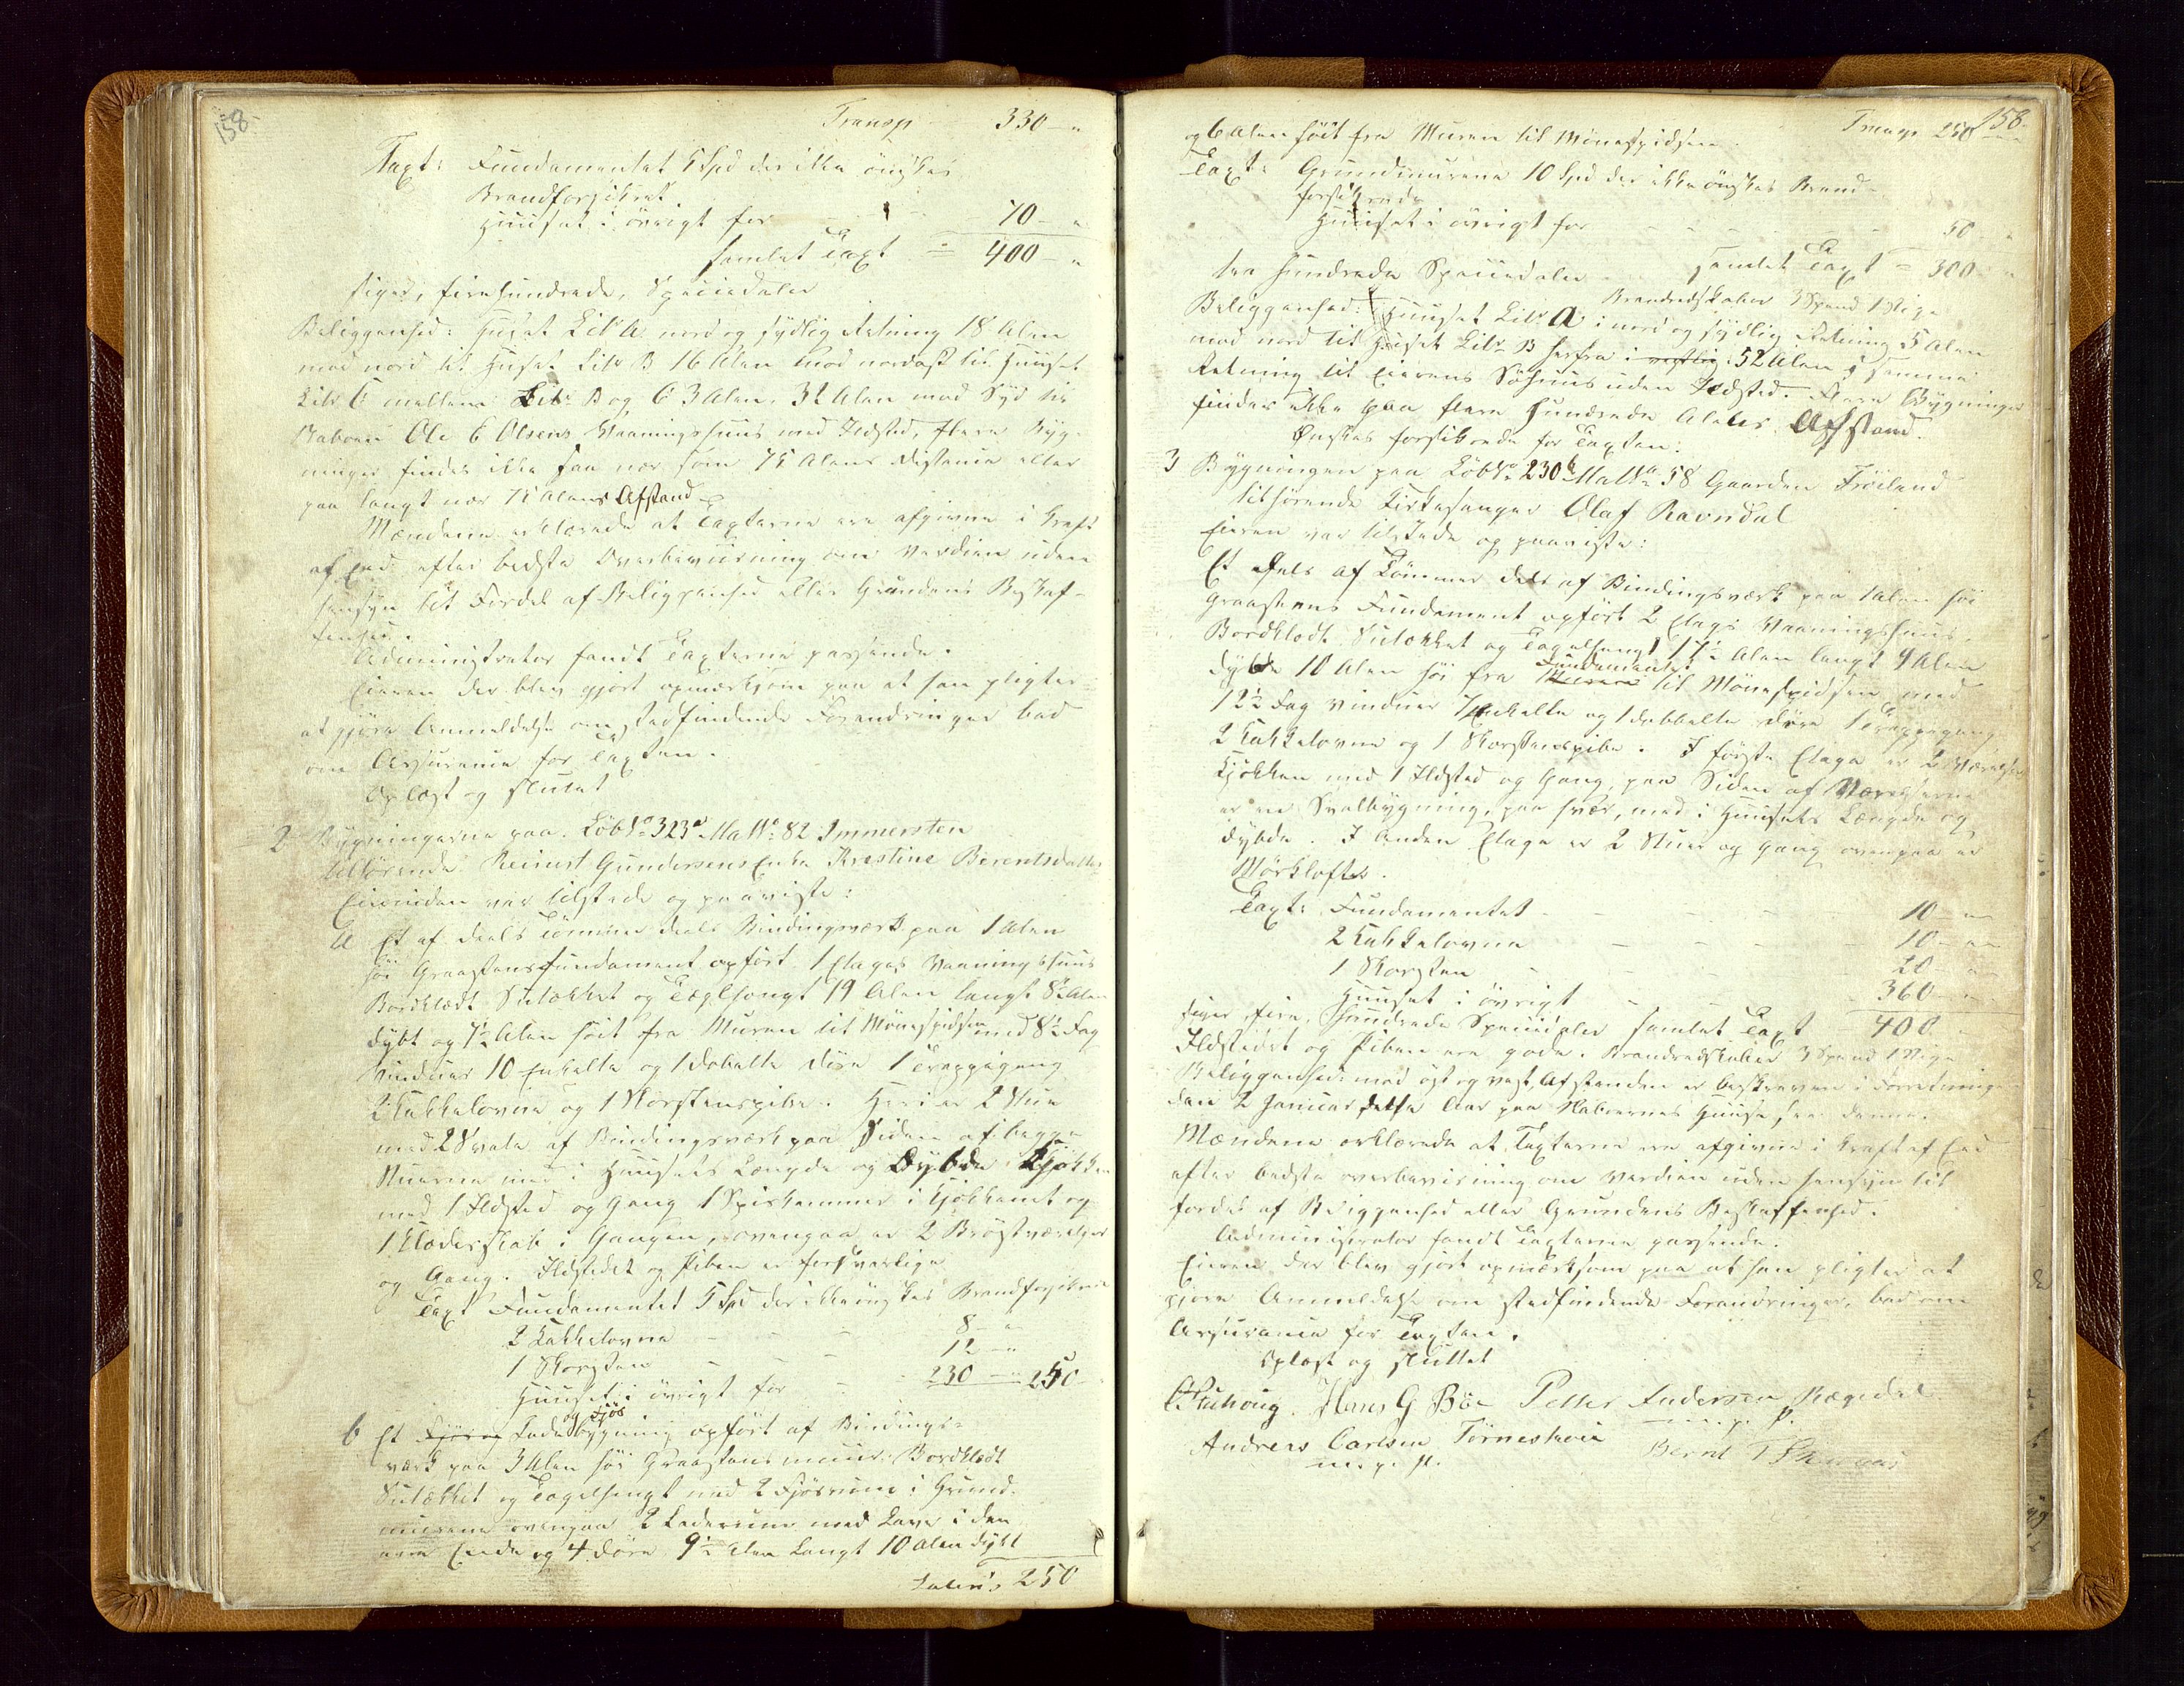 158
Transp 330 - "
Taxt: Fundamentet 5 Spd der ikke önskes
Brandforsikret
Huuset i övrigt for - - 70 - "
samlet Taxt = 400 - "
siger, firehundrede, Speciedaler
Beliggenhed: Huset Litr A nord og sydlig Retning 18 Alen
mod nord til Huset Litr B 16 Alen mod nordost til Huuset
Litr C mellem Litr B og C 3 Alen. 32 Alen mod Syd til
Naboen Ole C Olsens Vaaningshuus med Ildsted, flere Byg-
ninger findes ikke saa nær som 75 Alens Distance eller
paa langt nær 75 Alens Afstand
Mændene erklærede at Taxterne ere afgivne i Kraft
af Eed efter bedste Overbeviisning om Værdien uden
hensyn til Fordel af Beliggenhed eller Grundens Beskaf-
fenhed.
Administrator fandt Taxterne passende.
Eieren der blev gjort opmærksom paa at han pligter
at gjöre Anmeldelse om stedfindende Forandringer bad
om Assurance for Taxten.
Oplæst og sluttet
2 Bygningerne paa Löb No 323a Mat No 82 Immersten
tilhörende Reinert Gundersens Enke Kristine Berentsdatter
Eierinden var tilstede og paaviste:
A Et af deels Tömmer deels Bindingsværk paa 1 Alen
höi Graasteensfundament opfört 1 Etages Vaaningshuus
Bordklædt Sutækket og Tæglhængt 19 Alen langt 8½ Alen
dybt og 7½ Alen höit fra Muren til Mönespidsen med 8½ Fag
Vinduer 10 Enkelte og 1 dobbelte Döre 1 Trappegang
2 Kakkelovne og 1 Skorsteenspibe. Heri er 2 Stuer
med 2 Svale af Bindingsværk paa Siden af begge
Stuerne med i Huusets Længde og Dybde Kjökken
med 1 Ildsted og Gang 1 Spiskammer i Kjökkenet og
1 Klædeskab i Gangen, ovenpaa er 2 Bröstværelser
og Gang. Ildstedet og Piben er forsvarlige
Taxt Fundamentet 5 Spd der ikke önskes Brandforsikret
2 Kakkelovne - - - 8 - "
1 Skorsten - - - 12 - "
Huuset i övrigt for - - 230 - " 250
B Et Fjös og Ladebygning og Fjös opfört af Bindings-
værk paa 3 Alen höi Graasteens muur. Bordklædt
Sutækket og Tagelhængt med 2 Fjösrum i Grund-
murene ovenpaa 2 Laderum med Lave i den
ene Ende og 4 Döre 9½ Alen Langt 10 Alen dybt
Lateris 250
158
Transp 250 - "
og 6 Alen höit fra Muren til Mönespidsen.
Taxt: Grundmurene 10 Spd der ikke önskes Brand-
forsikrede
Huuset i övrigt for - - - - 50 - "
tre Hundrede Speciedaler samlet Taxt = 300 - "
Brandredskaber 3 Spand 1 Stige
Beliggenhed: Huuset Litr A i nord og sydlig Retning 5 Alen
mod nord til Huset Litr B herfra i vestlig 52 Alen i samme
Retning til Eierens Söhuus uden Ildsted. Flere Bygninger
findes ikke paa flere hundrede Alens Afstand.
Önskes forsikrede for Taxten.
3 Bygningen paa Löb No 230b Mat No 58 Gaarden Fröiland
tilhörende Kirkesanger Olaf Ravndal
Eieren var tilstede og paaviste:
Et dels af Tömmer dels af Bindingsværk paa 1 Alen höi
Graasteens Fundament opfört 2 Etages Vaaningshuus.
Bordklædt Sutækket og Tagelhængt 17½ Alen langt 9 Alen
dybde 10 Alen höi fra Muren Fundamentet til Mönespidsen med
12½ Fag Vinduer 7 Enkelte og 1 dobbelte Döre 1 Trappegang
2 Kakkelovne og 1 Skorsteenspibe. I förste Etage er 2 Værelser
Kjökken med 1 Ildsted og Gang, paa Siden af Værelserne
er en Svalbygning, paa hver, med i Huusets Længde og
Dybde. I Anden Etage er 2 Stuer og Gang ovenpaa er
Mörklofter.
Taxt: Fundamentet - - - 10 - "
2 Kakkelovne - - - 10 - "
1 Skorsten - - - 20 - "
Huuset i övrigt - - - 360 - "
siger fire Hundrede Speciedaler samlet Taxt 400 "
Ildstedet og Piben ere gode. Brandredskaber 3 Spand 1 Stige
Beliggenhed: mod öst og vest, Afstanden er beskreven i Forretning
den 2 Januar dette Aar paa Naboernes Huuse, see denne.
Mændene erklærede at Taxterne ere afgivne i Kraft af Eed
efter bedste overbeviisning om Værdien uden hensyn til
fordel af Beliggenhed eller Grundens Beskaffenhed.
Administrator fandt Taxterne passende.
Eieren der blev gjort opmærksom paa at han pligter at
gjöre Anmeldelse om stedfindende Forandringer, bad om
Assurance for Taxten.
Oplæst og sluttet
Hans G Böe Petter Andersen Rægedal
m. p. P.
Andreas Carlsen Törneskoie Bernt
m. p. P.